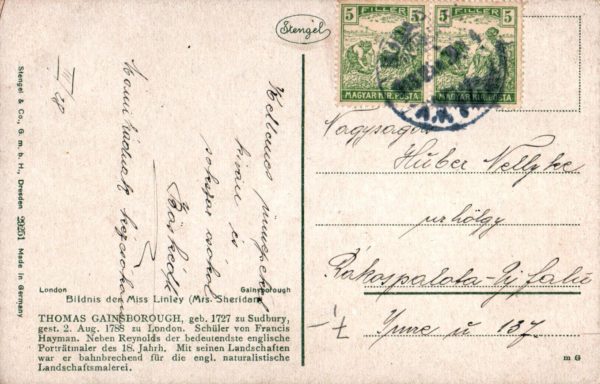 Stengel
5 FILLER 5
MAGYAR KIR. POSTA
5 FILLER 5
MAGYAR KIR. POSTA
Stengel & Co., G. m. b. H., Dresden 29251 Made in Germany
Kellemes
kiván és
sokszor csókol
Böskéd
London Gainsborough
Bildnis der Miss Linley (Mrs. Sheridan)
THOMAS GAINSBOROUGH, geb. 1727 zu Sudbury,
gest. 2. Aug. 1788 zu London. Schüler von Francis
Hayman. Neben Reynolds der bedeutendste englische
Porträtmaler des 18. Jahrh. Mit seinen Landschaften
war er bahnbrechend für die engl. naturalistische
Landschaftsmalerei.
Nagyságos
Huber Nellyke
urhölgy
Rákospalota-Uj falu
Imre u 137.
7.-
m G